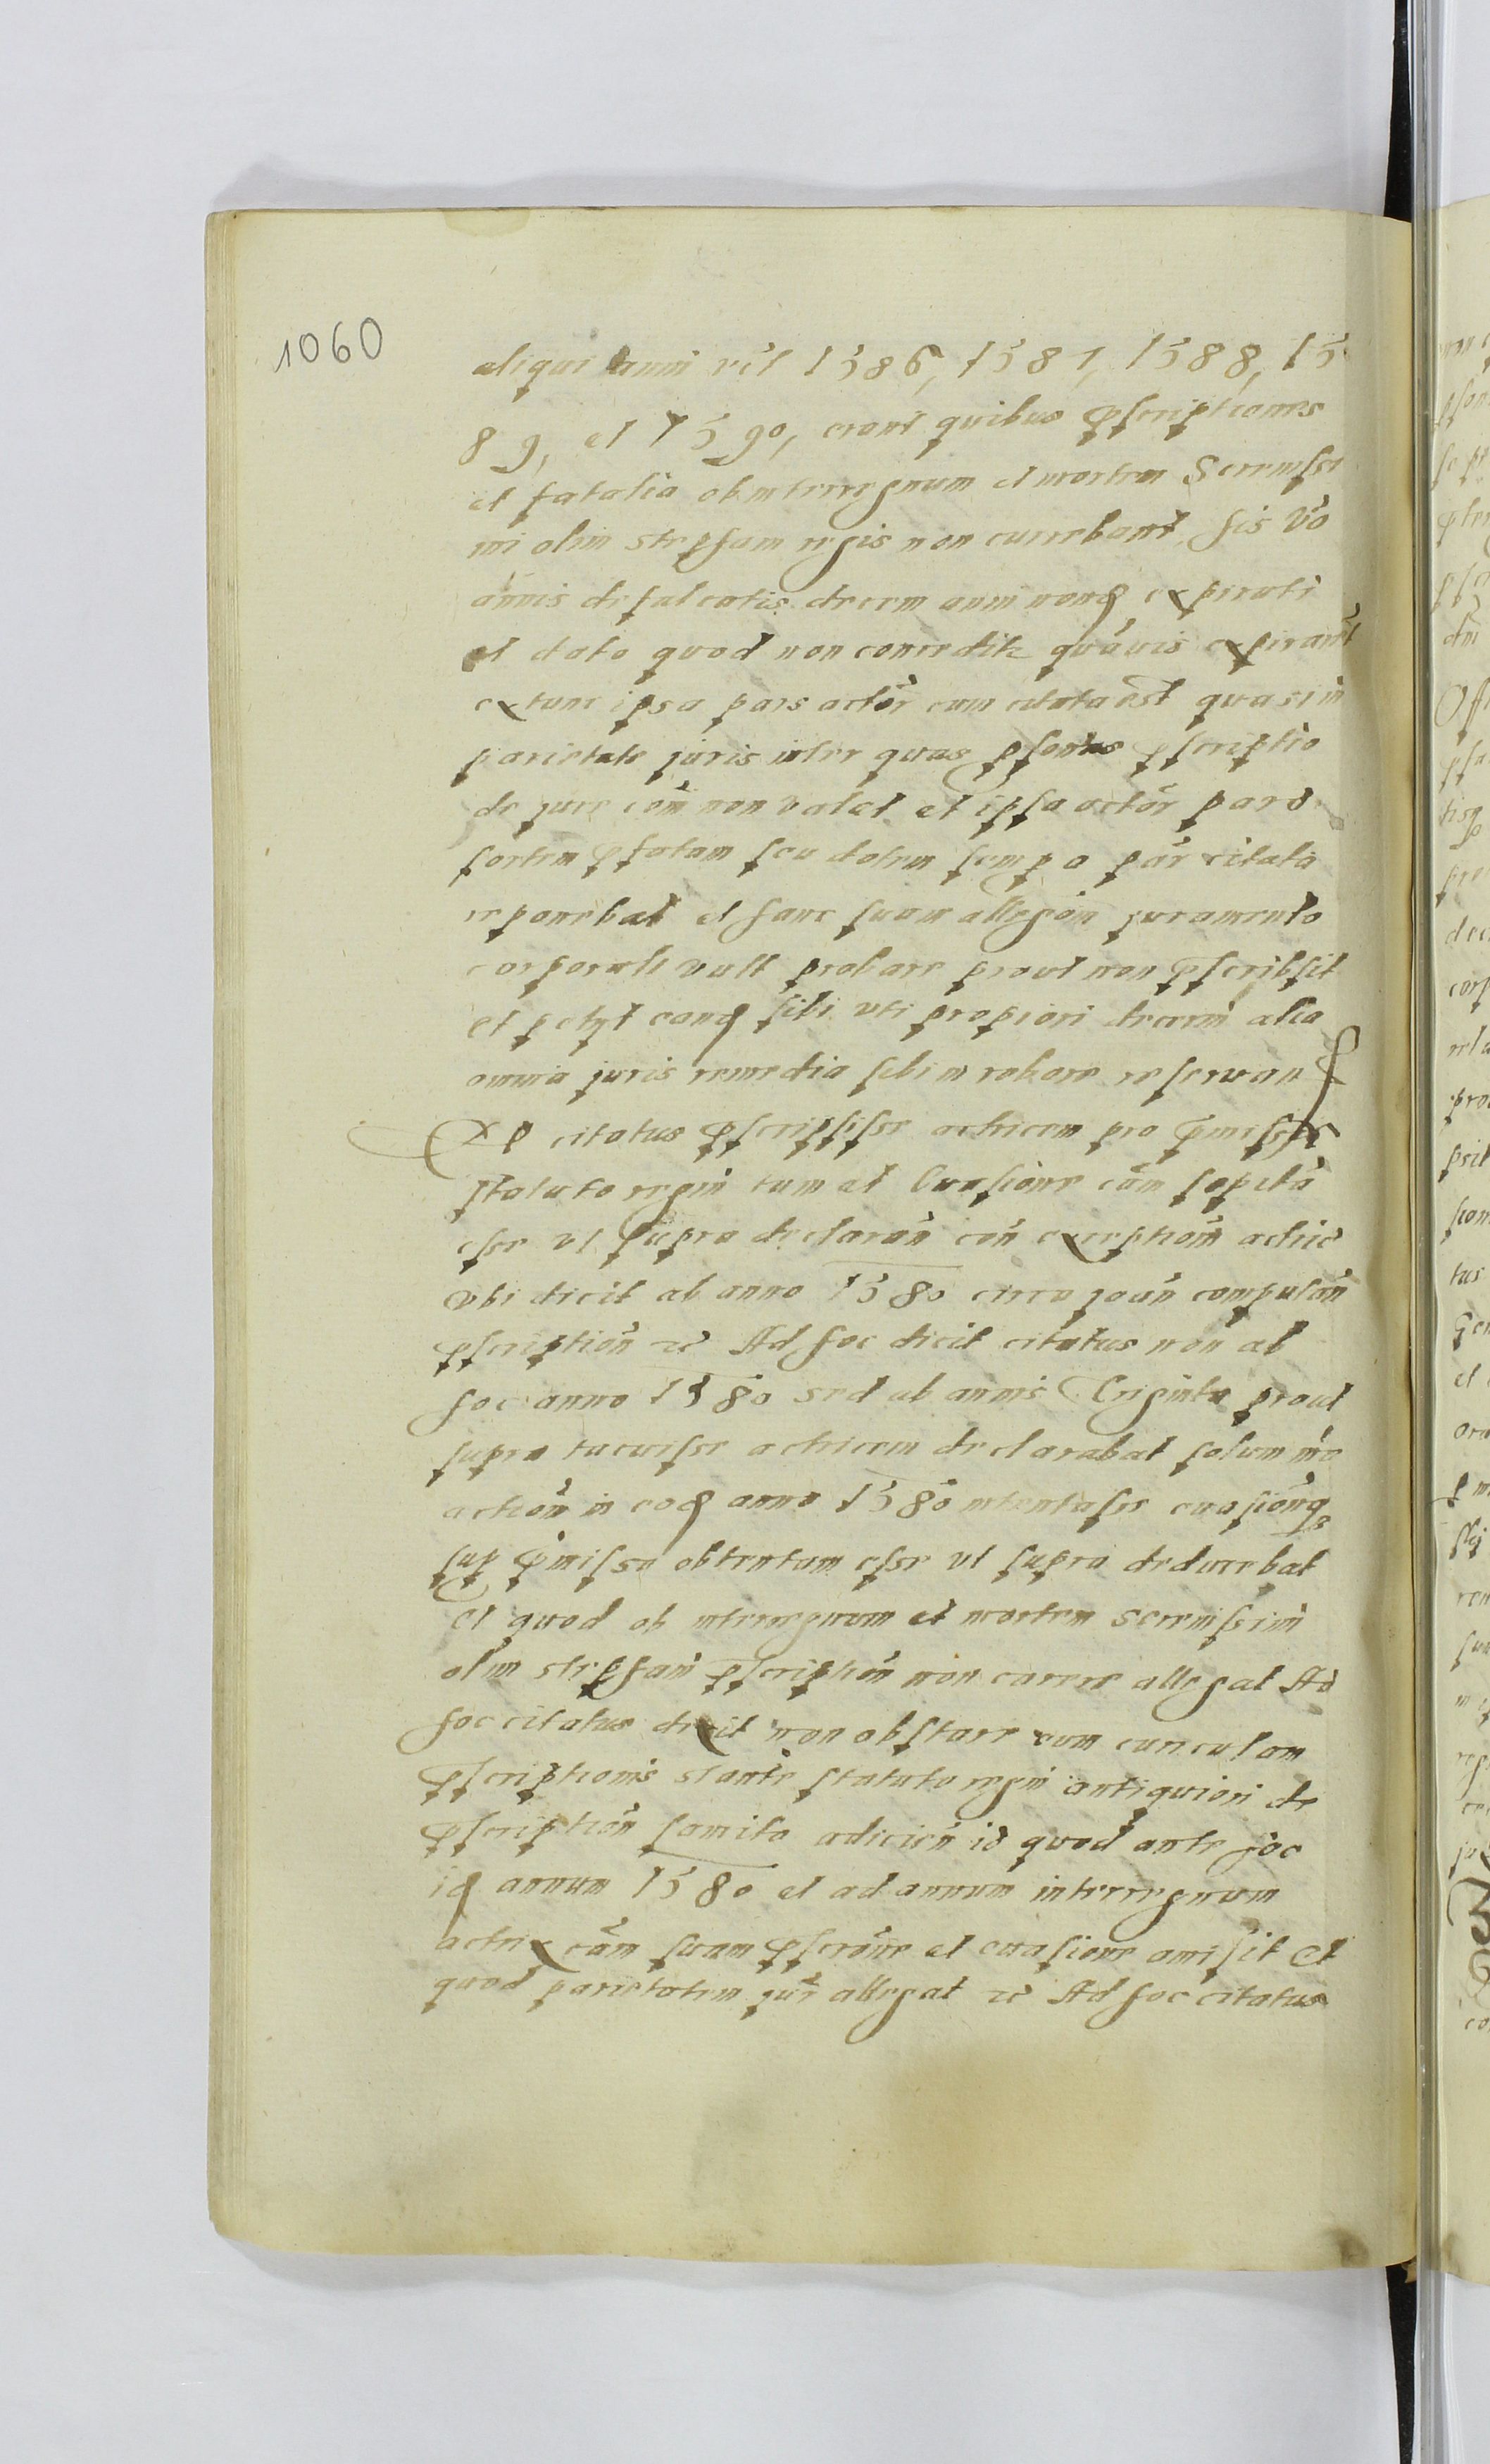 1060
aliqui anni v̄cꝫ 1586, 1587, 1588, 15
89, et 1590, erant quibus p̄scriptiones
et fatalia ob interregnum et mortem Serenissi
mi olim Stephani regis non currebant his v̄o
annis defalcatis decem anni nondū expirati
et dato quod non conceditꝛ quāuis expirarūt
extunc ipsa pars actōr cum citata est quasi in
parietate juris inter quas ꝑsonas p̄scriptio
de jure com̄ non valet et ipsa actōr pars
sortem p̄fatam seu dotem semꝑ a par̄ citata
reponebat et hanc suam allegōin juramento
corporali vult probare prout non p̄scribsit
et petyt eand sibi uti propriori decerni alia
omnia juris remedia sibi in robore reservan
Ex ꝙ citatus p̄scripsisse actricem pro p̄missis
statuto regni tum et Evasione cām sopitā
esse ut supra declarān con̄ exceptiōn actric̄
ubi dicit ab anno 1580 circa joān computān
p̄scriptiōn ꝛc Ad hoc dicit citatus non ab
hoc anno 1580 sed ab annis Triginta prout
supra tacuisse actricem declarabat solum m̄o
actiōn in eod anno 1580 intentasse evasiōnqꝫ
suꝑ p̄missa obtentam esse ut supra deducebat
Et quod ob interregnum et mortem serenissimi
olim Stephani p̄scriptiōn non currere allegat Ad
hoc citatus dixit non obstare eum curriculum
p̄scriptionis stante statuto regni antiquiori de
p̄scriptiōn sancito adicien̄ id quod ante hoc
id annum 1580 et ad annum interregnum
actrix cām suam p̄scrōne et evasione amisit Et
quod parietatem jur̄ allegat ꝛc Ad hoc citatus